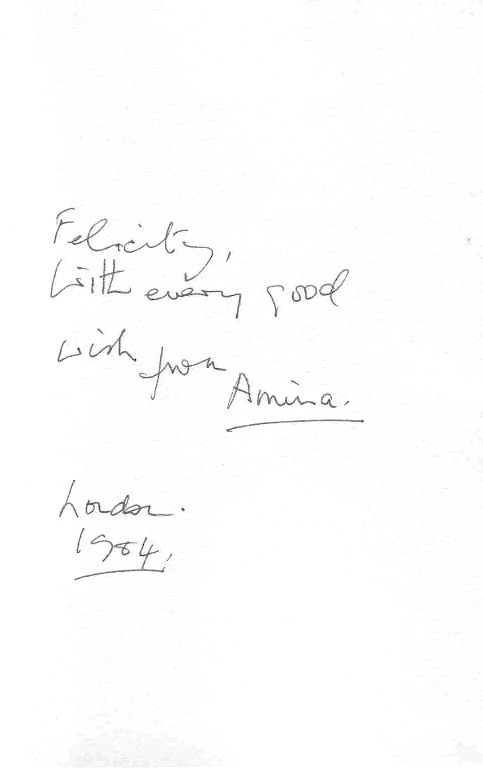 Felicity,
With every good
wish from
Amina.
London.
1984.